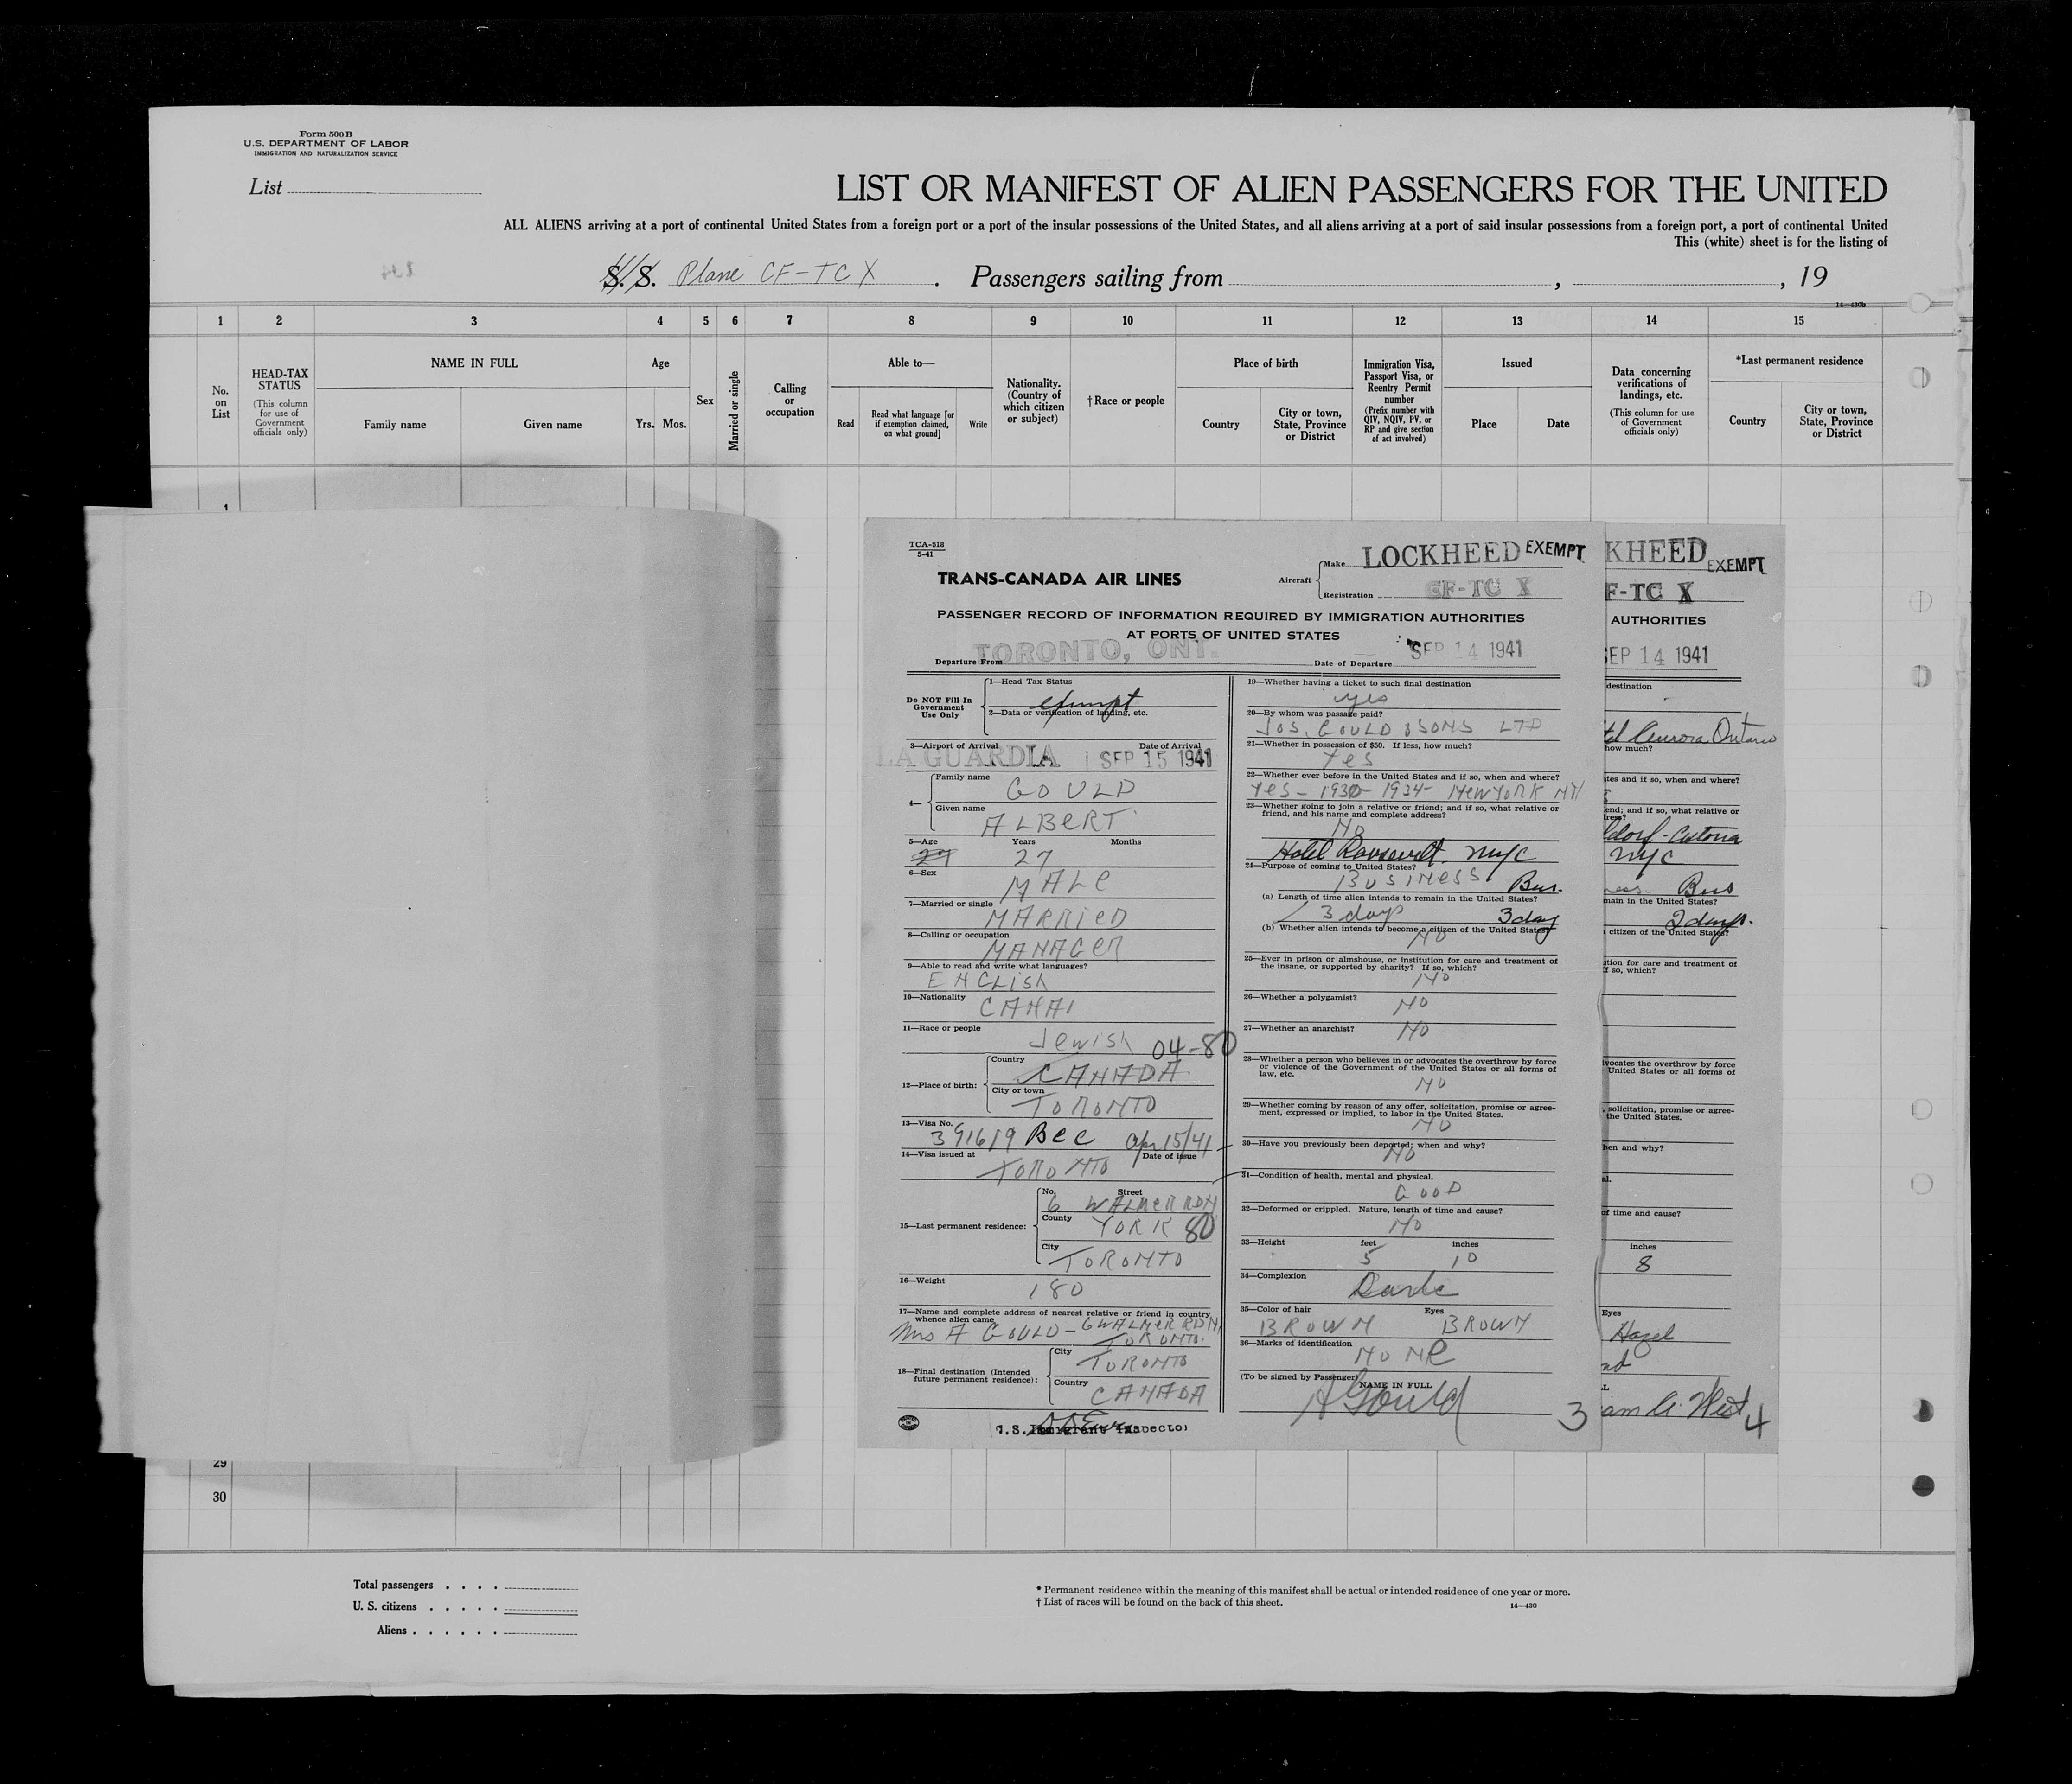 Form 500 B
U.S. DEPARTMENT OF LABOR
IMMIGRATION AND NATURALIZATION SERVICE
List
LIST OR MANIFEST OF ALIEN PASSENGERS FOR THE UNITED
ALL ALIENS arriving at a port of continental United States from a foreign port or a port of the insular possessions of the United States, and all aliens arriving at a port of said insular possessions from a foreign port, a port of continental United
This (white) sheet is for the listing of
S. S. Plane CF-TCX . Passengers sailing from , , 19
14—430b
1 2 3 4 5 6 7 8 9 10 11 12 13 14 15
No. on List
HEAD-TAX STATUS
(This column for use of Government officials only)
NAME IN FULL
Family name
Given name
Age
Yrs. Mos.
Sex
Married or single
Calling or occupation
Able to—
Read
Read what language [or if exemption claimed, on what ground]
Write
Nationality. (Country of which citizen or subject)
†Race or people
Place of birth
Country
City or town, State, Province or District
Immigration Visa, Passport Visa, or Reentry Permit number
(Prefix number with QIV, NQIV, PV, or RP and give section of act involved)
Issued
Place
Date
Data concerning verifications of landings, etc.
(This column for use of Government officials only)
*Last permanent residence
Country
City or town, State, Province or District
1
TCA-518
5-41
TRANS-CANADA AIR LINES
Aircraft
Make LOCKHEED EXEMPT
Registration CF-TC X
PASSENGER RECORD OF INFORMATION REQUIRED BY IMMIGRATION AUTHORITIES
AT PORTS OF UNITED STATES
Departure From TORONTO, ONT.
Date of Departure SEP 14 1941
Do NOT Fill In Government Use Only
1—Head Tax Status
exempt
2—Data or verification of landing, etc.
3—Airport of Arrival Date of Arrival
LA GUARDIA SEP 15 1941
4— Family name
GOULD
Given name
ALBERT
5—Age Years Months
27 27
6—Sex
MALE
7—Married or single
MARRIED
8—Calling or occupation
MANAGER
9—Able to read and write what languages?
ENGLISH
10—Nationality
CANA
11—Race or people
Jewish 04-80
12—Place of birth:
Country
CANADA
City or town
TORONTO
13—Visa No.
391619 BCC Apr 15/41
14—Visa issued at Date of issue
TORONTO
15—Last permanent residence:
No. Street
6 WALMER RD N
County
YORK 80
City
TORONTO
16—Weight
180
17—Name and complete address of nearest relative or friend in country whence alien came
Mrs A GOULD - 6 WALMER RD N,
TORONTO.
18—Final destination (Intended future permanent residence):
City
TORONTO
Country
CANADA
U.S. Immigrant Inspector
19—Whether having a ticket to such final destination
yes
20—By whom was passage paid?
JOS. GOULD & SONS LTD
21—Whether in possession of $50. If less, how much?
Yes
22—Whether ever before in the United States and if so, when and where?
Yes - 1930 - 1934 - NEW YORK NY
23—Whether going to join a relative or friend; and if so, what relative or friend, and his name and complete address?
NO
Hotel Roosevelt. NYC
24—Purpose of coming to United States?
BUSINESS Bus.
(a) Length of time alien intends to remain in the United States?
3 days 3 day
(b) Whether alien intends to become a citizen of the United States?
NO
25—Ever in prison or almshouse, or institution for care and treatment of the insane, or supported by charity? If so, which?
NO
26—Whether a polygamist?
NO
27—Whether an anarchist?
NO
28—Whether a person who believes in or advocates the overthrow by force or violence of the Government of the United States or all forms of law, etc.
NO
29—Whether coming by reason of any offer, solicitation, promise or agreement, expressed or implied, to labor in the United States.
NO
30—Have you previously been deported; when and why?
NO
31—Condition of health, mental and physical.
GOOD
32—Deformed or crippled. Nature, length of time and cause?
NO
33—Height feet inches
5 10
34—Complexion
Dark
35—Color of hair Eyes
BROWN BROWN
36—Marks of identification
NONE
(To be signed by Passenger) NAME IN FULL
A Gould
3
KHEED EXEMPT
F-TC X
AUTHORITIES
SEP 14 1941
destination
Aurora Ontario
how much?
ates and if so, when and where?
end; and if so, what relative or
ress?
ldorf-Astoria
NYC
Bus
main in the United States?
2 days.
citizen of the United States?
tion for care and treatment of
f so, which?
vocates the overthrow by force
United States or all forms of
, solicitation, promise or agree-
the United States.
hen and why?
al.
of time and cause?
inches
8
Eyes
Hazel
am A. West
4
29
30
Total passengers
U. S. citizens
Aliens
* Permanent residence within the meaning of this manifest shall be actual or intended residence of one year or more.
† List of races will be found on the back of this sheet.
14—430